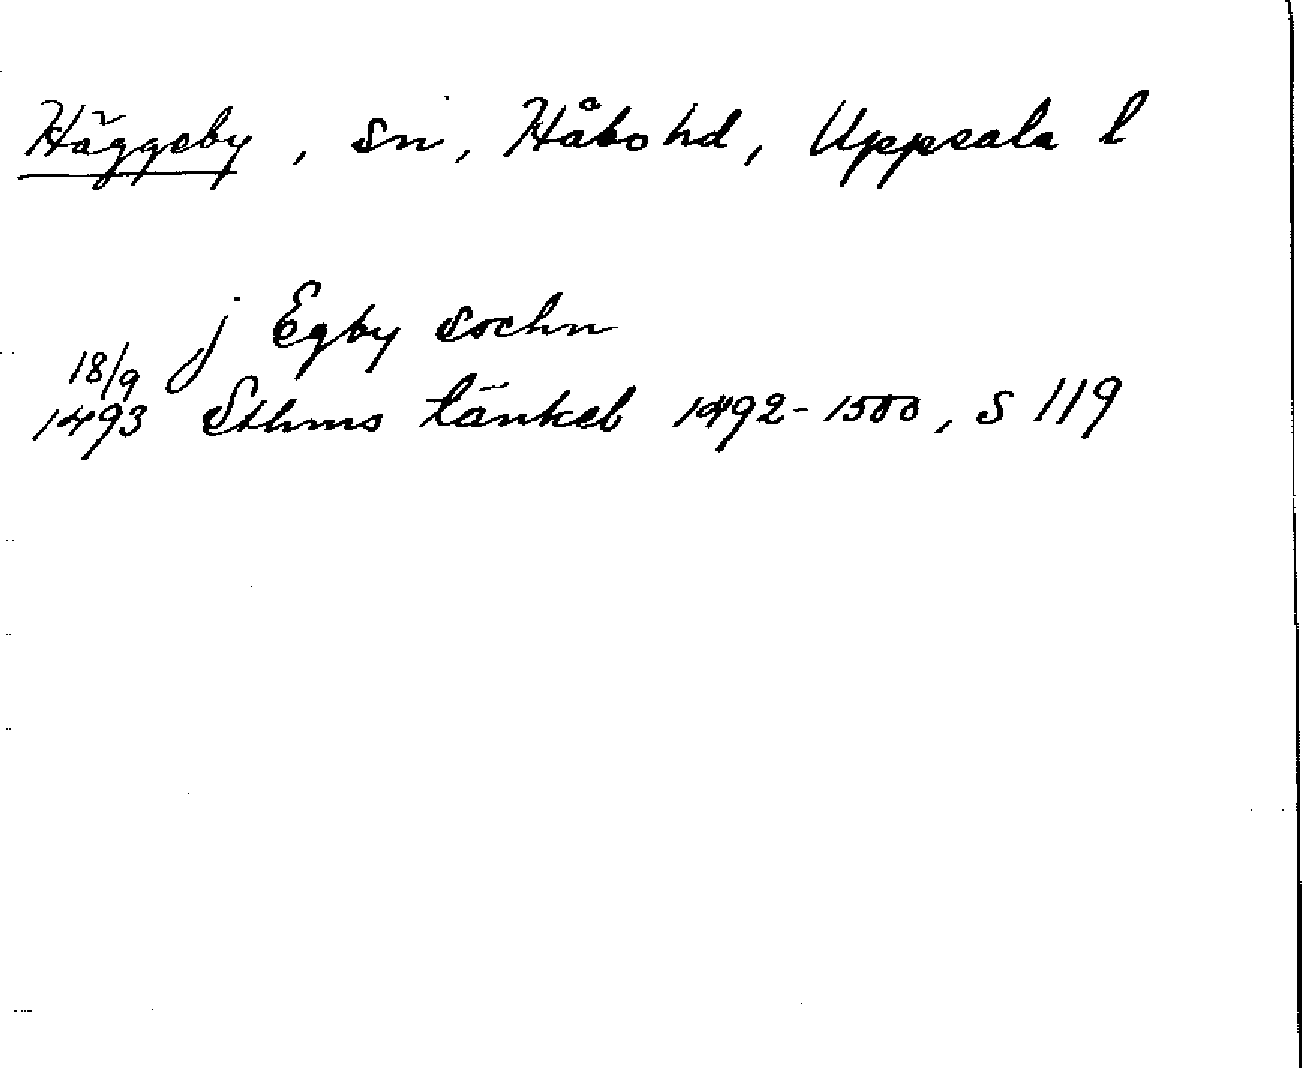 Häggeby, sn, Håbo hd, Uppsala l
j Egby sochn
18/9
1493 Sthms tänkeb 1492-1500, s 119